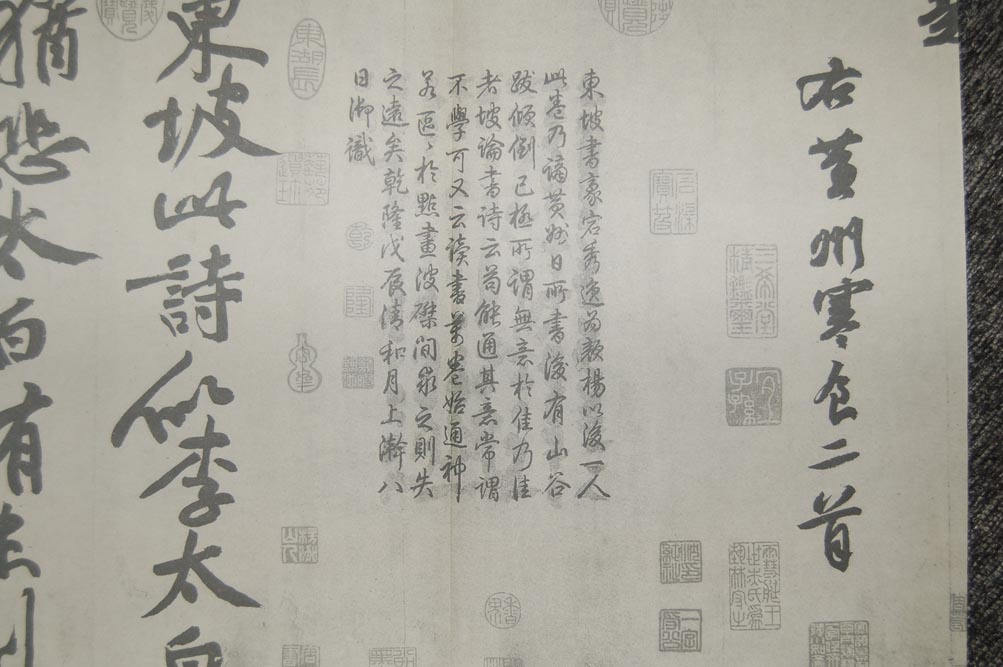 右黄州寒食二首
三希堂精鑑璽
宜子孫
東坡書豪宕秀逸為顏楊以後一人
此卷乃謫黃州日所書後有山谷
跋傾倒已極所謂無意於佳乃佳
者坡論書詩云苟能通其意常謂
不學可又云讀書萬卷始通神
若區〻於點畫波磔間求之則失
之遠矣乾隆戊辰清和月上澣八
日御識
東湖長
乾
隆
東坡此詩似李太白
猶恐太白有未到